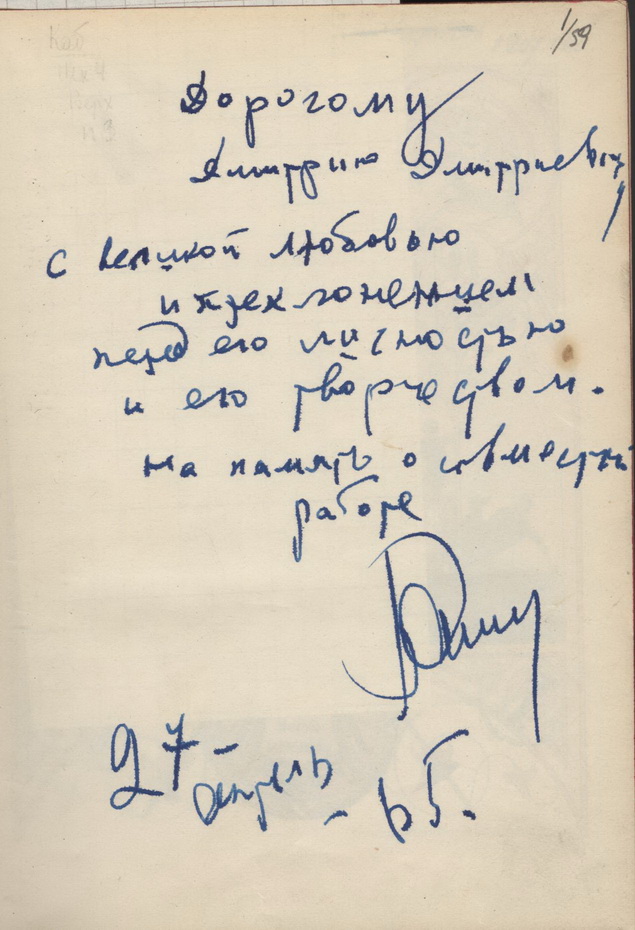 1/59
Дорогому
Дмитрию Дмитриевичу
с великой любовью
и преклонением
перед его личностью
и его творчеством.
На память о совместной
работе
27 – апрель – 65.